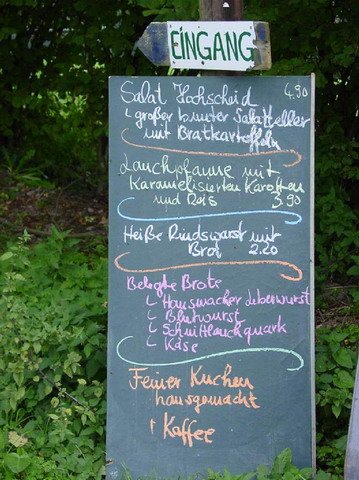 EINGANG
Salat Hochscheid 4.90
↳ großer bunter Salatteller
mit Bratkartoffeln
Lauchpfanne mit
Karamelisierten Karotten
und Reis 3.90
Heiße Rindswurst mit
Brot 2.20
Belegte Brote
↳ Hausmacher Leberwurst
↳ Blutwurst
↳ Schnittlauchquark
↳ Käse
Feiner Kuchen
hausgemacht
Kaffee